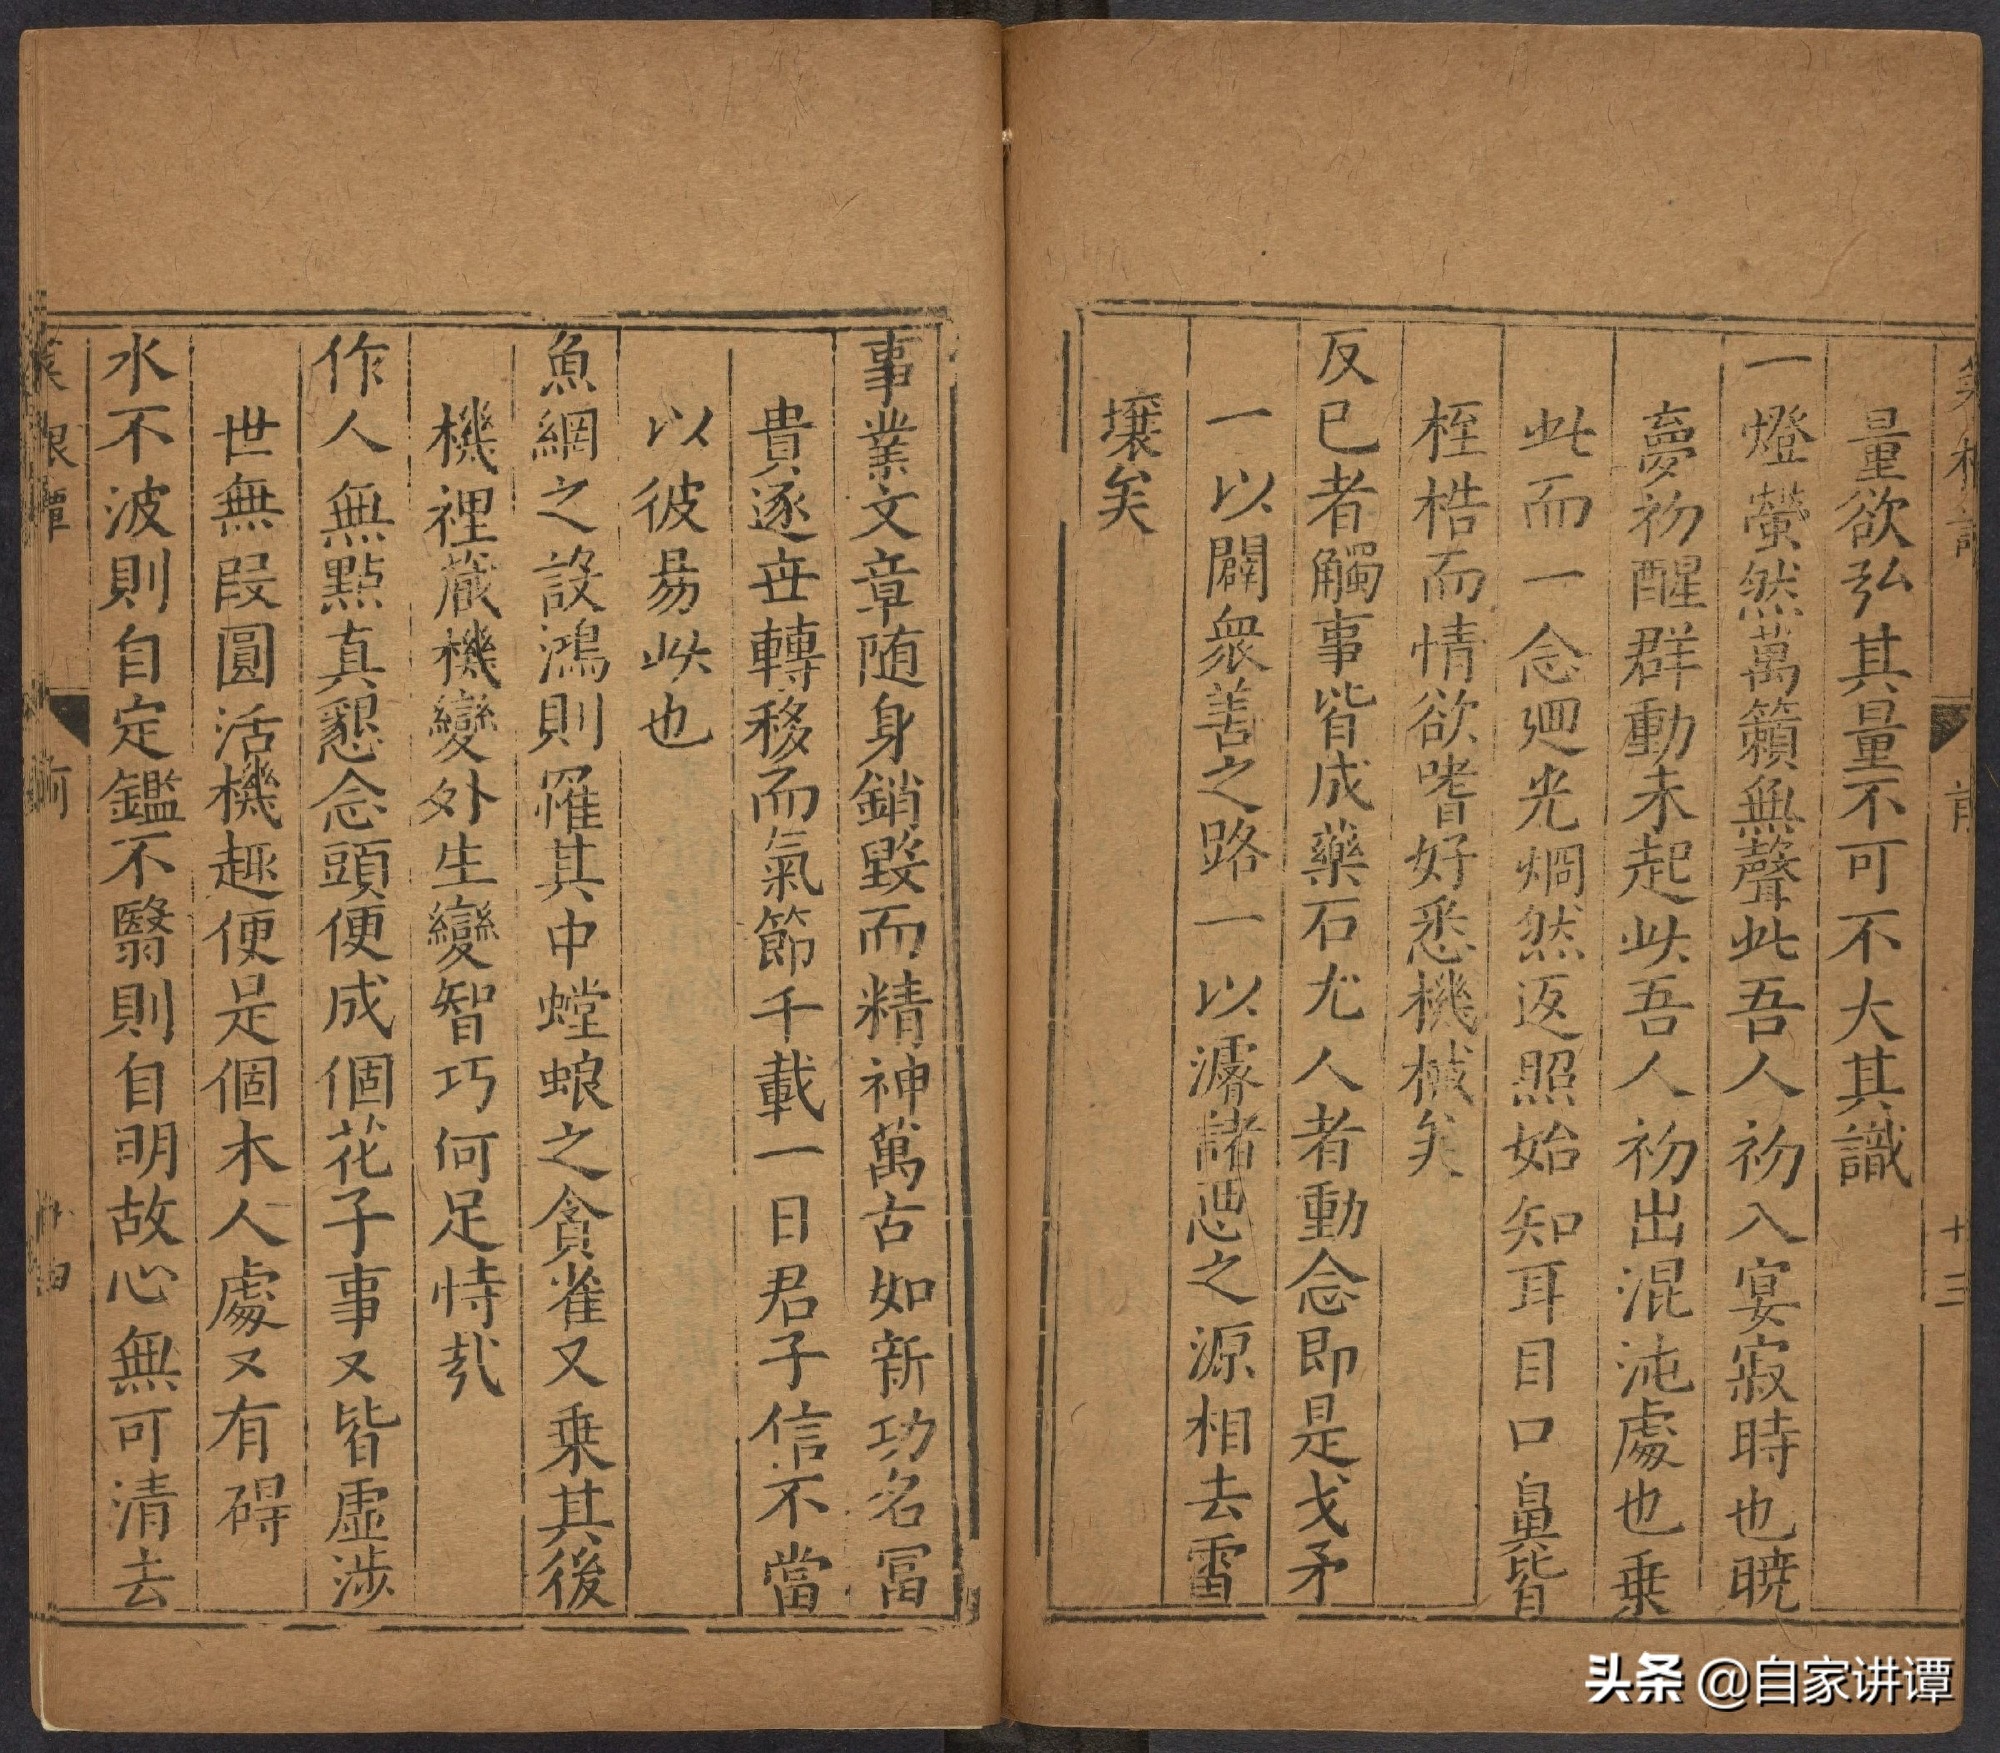 量欲弘其量不可不大其識
一燈螢然萬籟無聲此吾人初入宴寂時也曉
夢初醒群動未起此吾人初出混沌處也乗
此而一念廻光烱然返照始知耳目口鼻皆
桎梏而情欲嗜好悉機械矣
反已者觸事皆成藥石尤人者動念即是戈矛
一以闢衆善之路一以濬諸惡之源相去霄
壤矣
十三
事業文章随身銷毀而精神萬古如新功名冨
貴逐世轉移而氣節千載一日君子信不當
以彼易此也
魚網之設鴻則罹其中螳蜋之貪雀又乗其後
機裡藏機變外生變智巧何足恃哉
作人無點真懇念頭便成個花子事又皆虚涉
世無叚圓活機趣便是個木人處又有碍
水不波則自定鑑不翳則自明故心無可清去
菜根譚
前
十四
头条 @自家讲谭